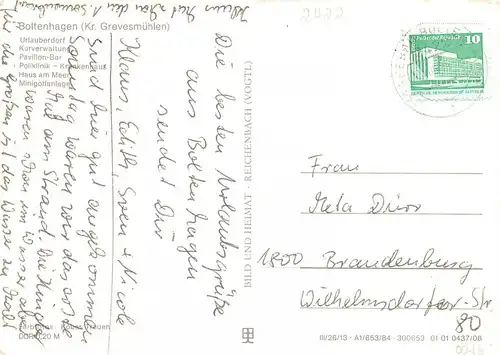 2422
Boltenhagen (Kr. Grevesmühlen)
Urlauberdorf
Kurverwaltung
Pavillon-Bar
Poliklinik – Krankenhaus
Haus am Meer
Minigolfanlage
Die besten Urlaubsgrüße
aus Boltenhagen
sendet Dir
Klaus, Edith, Sven + Nicole
sind hier gut angekommen
Sonntag waren wir das erste
Mal am Strand. Die Kinder
waren schon im Wasser aber
für die großen ist das Wasser zu kalt
BILD UND HEIMAT · REICHENBACH (VOGTL)
10
Frau
Meta Dürr
1800 Brandenburg
Wilhelmsdorfer-Str
80
DDR 0,20 M
III/26/13 · A1/653/84 · 300653 01 01 0437/08